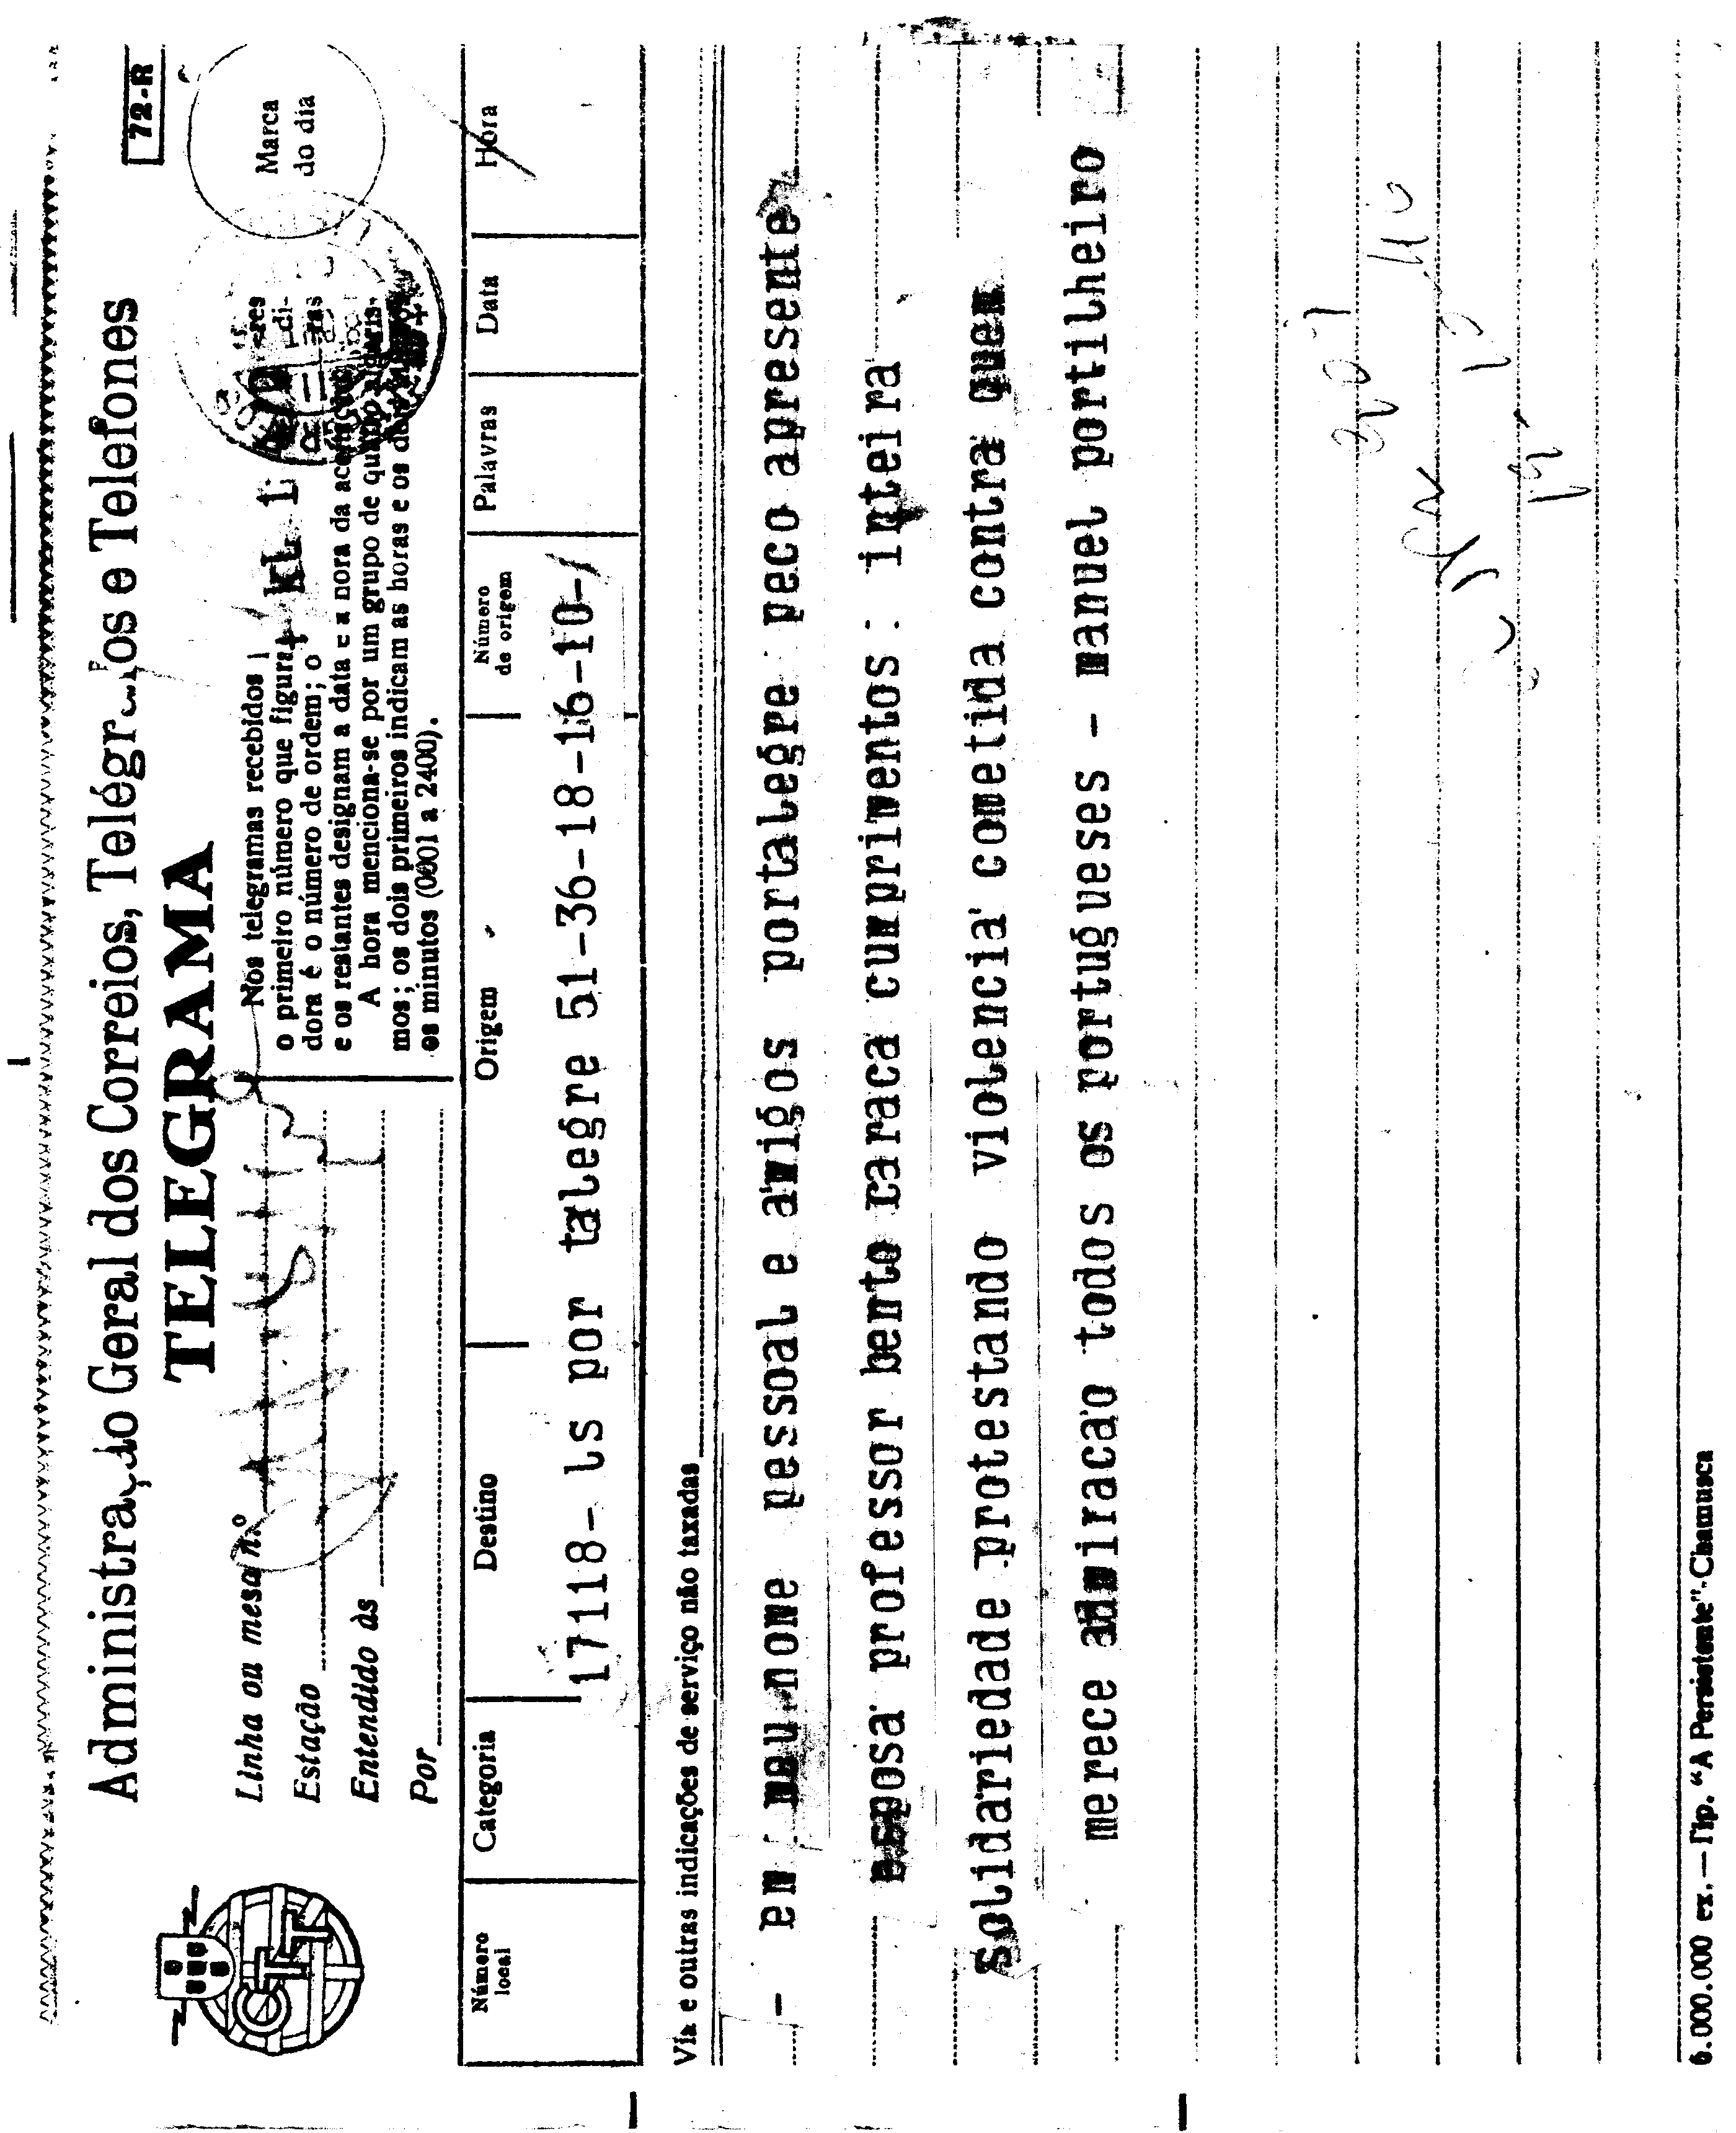 72-R
Administração Geral dos Correios, Telégrafos e Telefones
TELEGRAMA
Marca
do dia
Linha ou mesa n.º
Estação
Entendido às
Por
Nos telegramas recebidos
o primeiro número que figura
dora é o número de ordem; o
e os restantes designam a data e a hora da
A hora menciona-se por um grupo de quatro algaris-
mos; os dois primeiros indicam as horas e os dois
os minutos (0001 a 2400).
CTT
Número
local
Categoria
Destino
Origem
Número
de origem
Palavras
Data
Hora
17118- ls por talegre 51-36-18-16-10-/
Via e outras indicações de serviço não taxadas
- em meu nome pessoal e amigos portalegre peco apresente
esposa professor bento caraca cumprimentos : inteira
Solidariedade protestando violencia cometida contra quem
merece admiracao todos os portugueses - manuel portilheiro
6.000.000 ex. — Tip. "A Persistente"-Chamusca